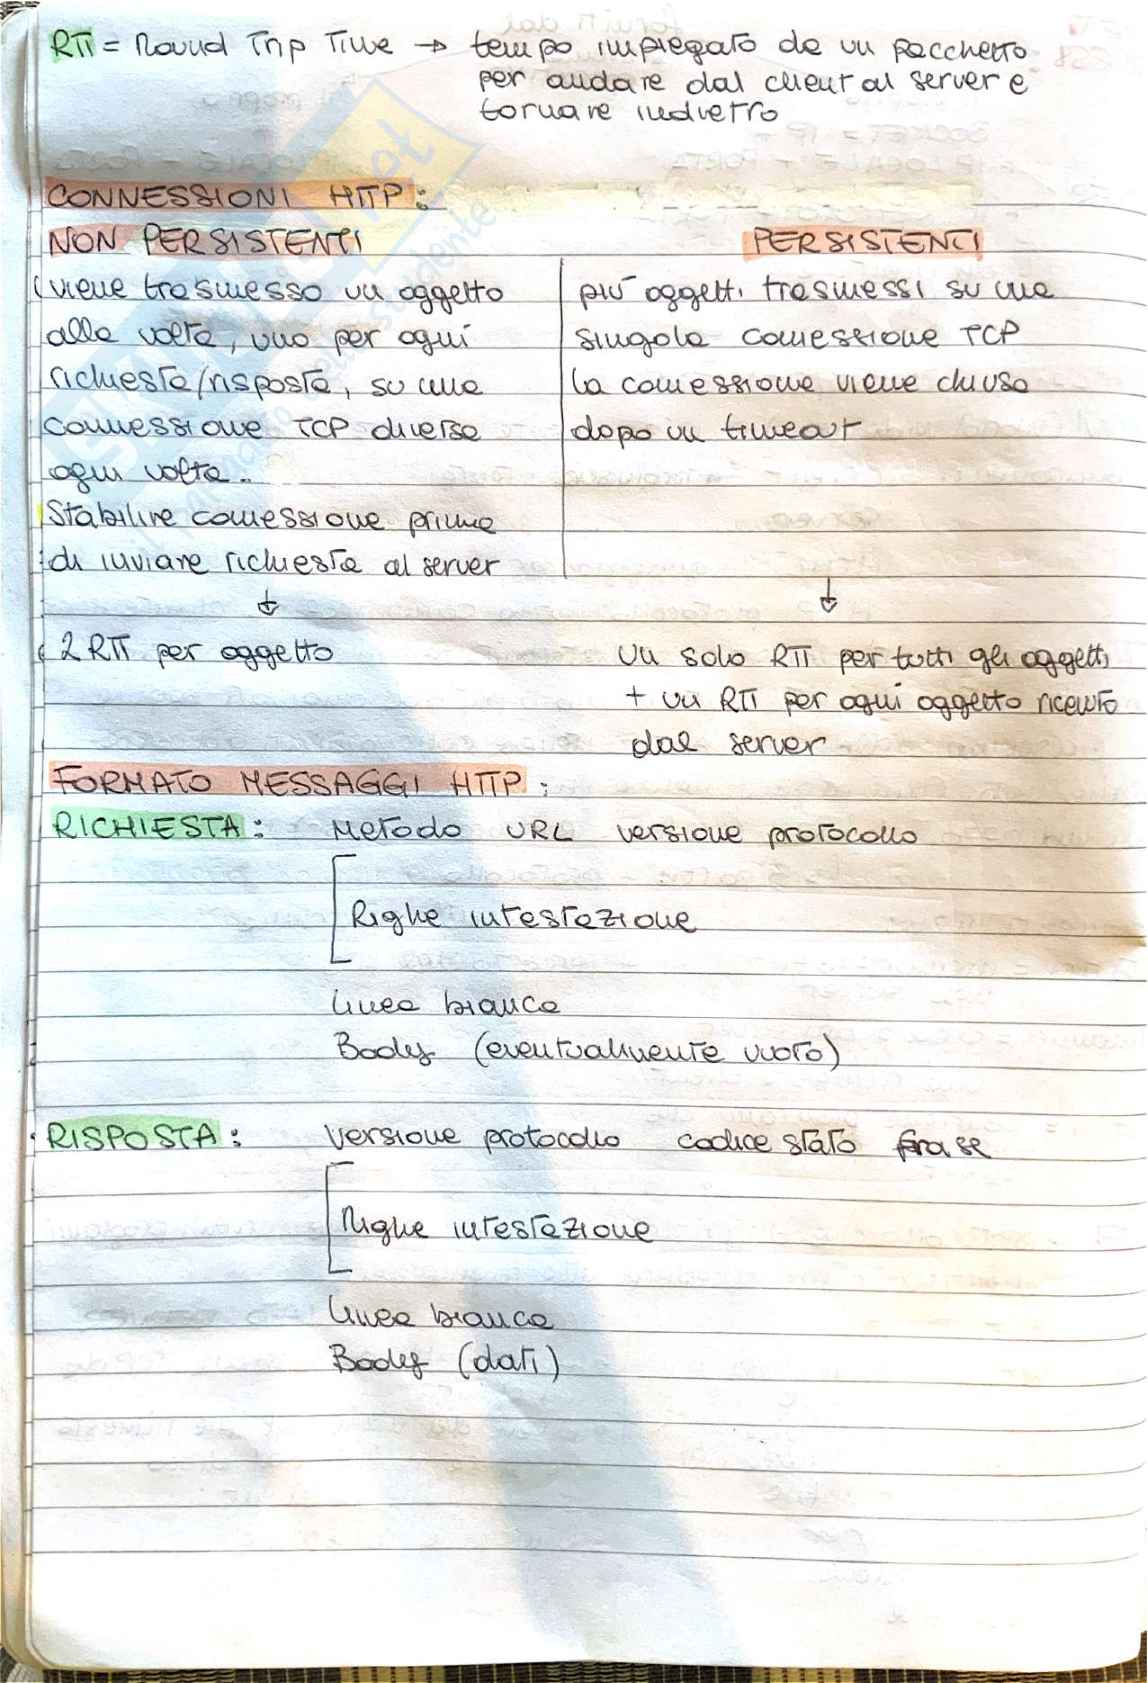 RTT = Round Trip Time → tempo impiegato da un pacchetto
per andare dal client al server e
tornare indietro
CONNESSIONI HTTP:
NON PERSISTENTI
viene trasmesso un oggetto
alla volta, uno per ogni
richiesta/risposta, su una
connessione TCP diversa
ogni volta.
Stabilire connessione prima
di inviare richiesta al server
↓
2 RTT per oggetto
PERSISTENTI
più oggetti trasmessi su una
singola connessione TCP
la connessione viene chiusa
dopo un timeout
↓
un solo RTT per tutti gli oggetti
+ un RTT per ogni oggetto ricevuto
dal server
FORMATO MESSAGGI HTTP:
RICHIESTA: Metodo URL versione protocollo
Righe intestazione
linea bianca
Body (eventualmente vuoto)
RISPOSTA: versione protocollo codice stato frase
Righe intestazione
linea bianca
Body (dati)